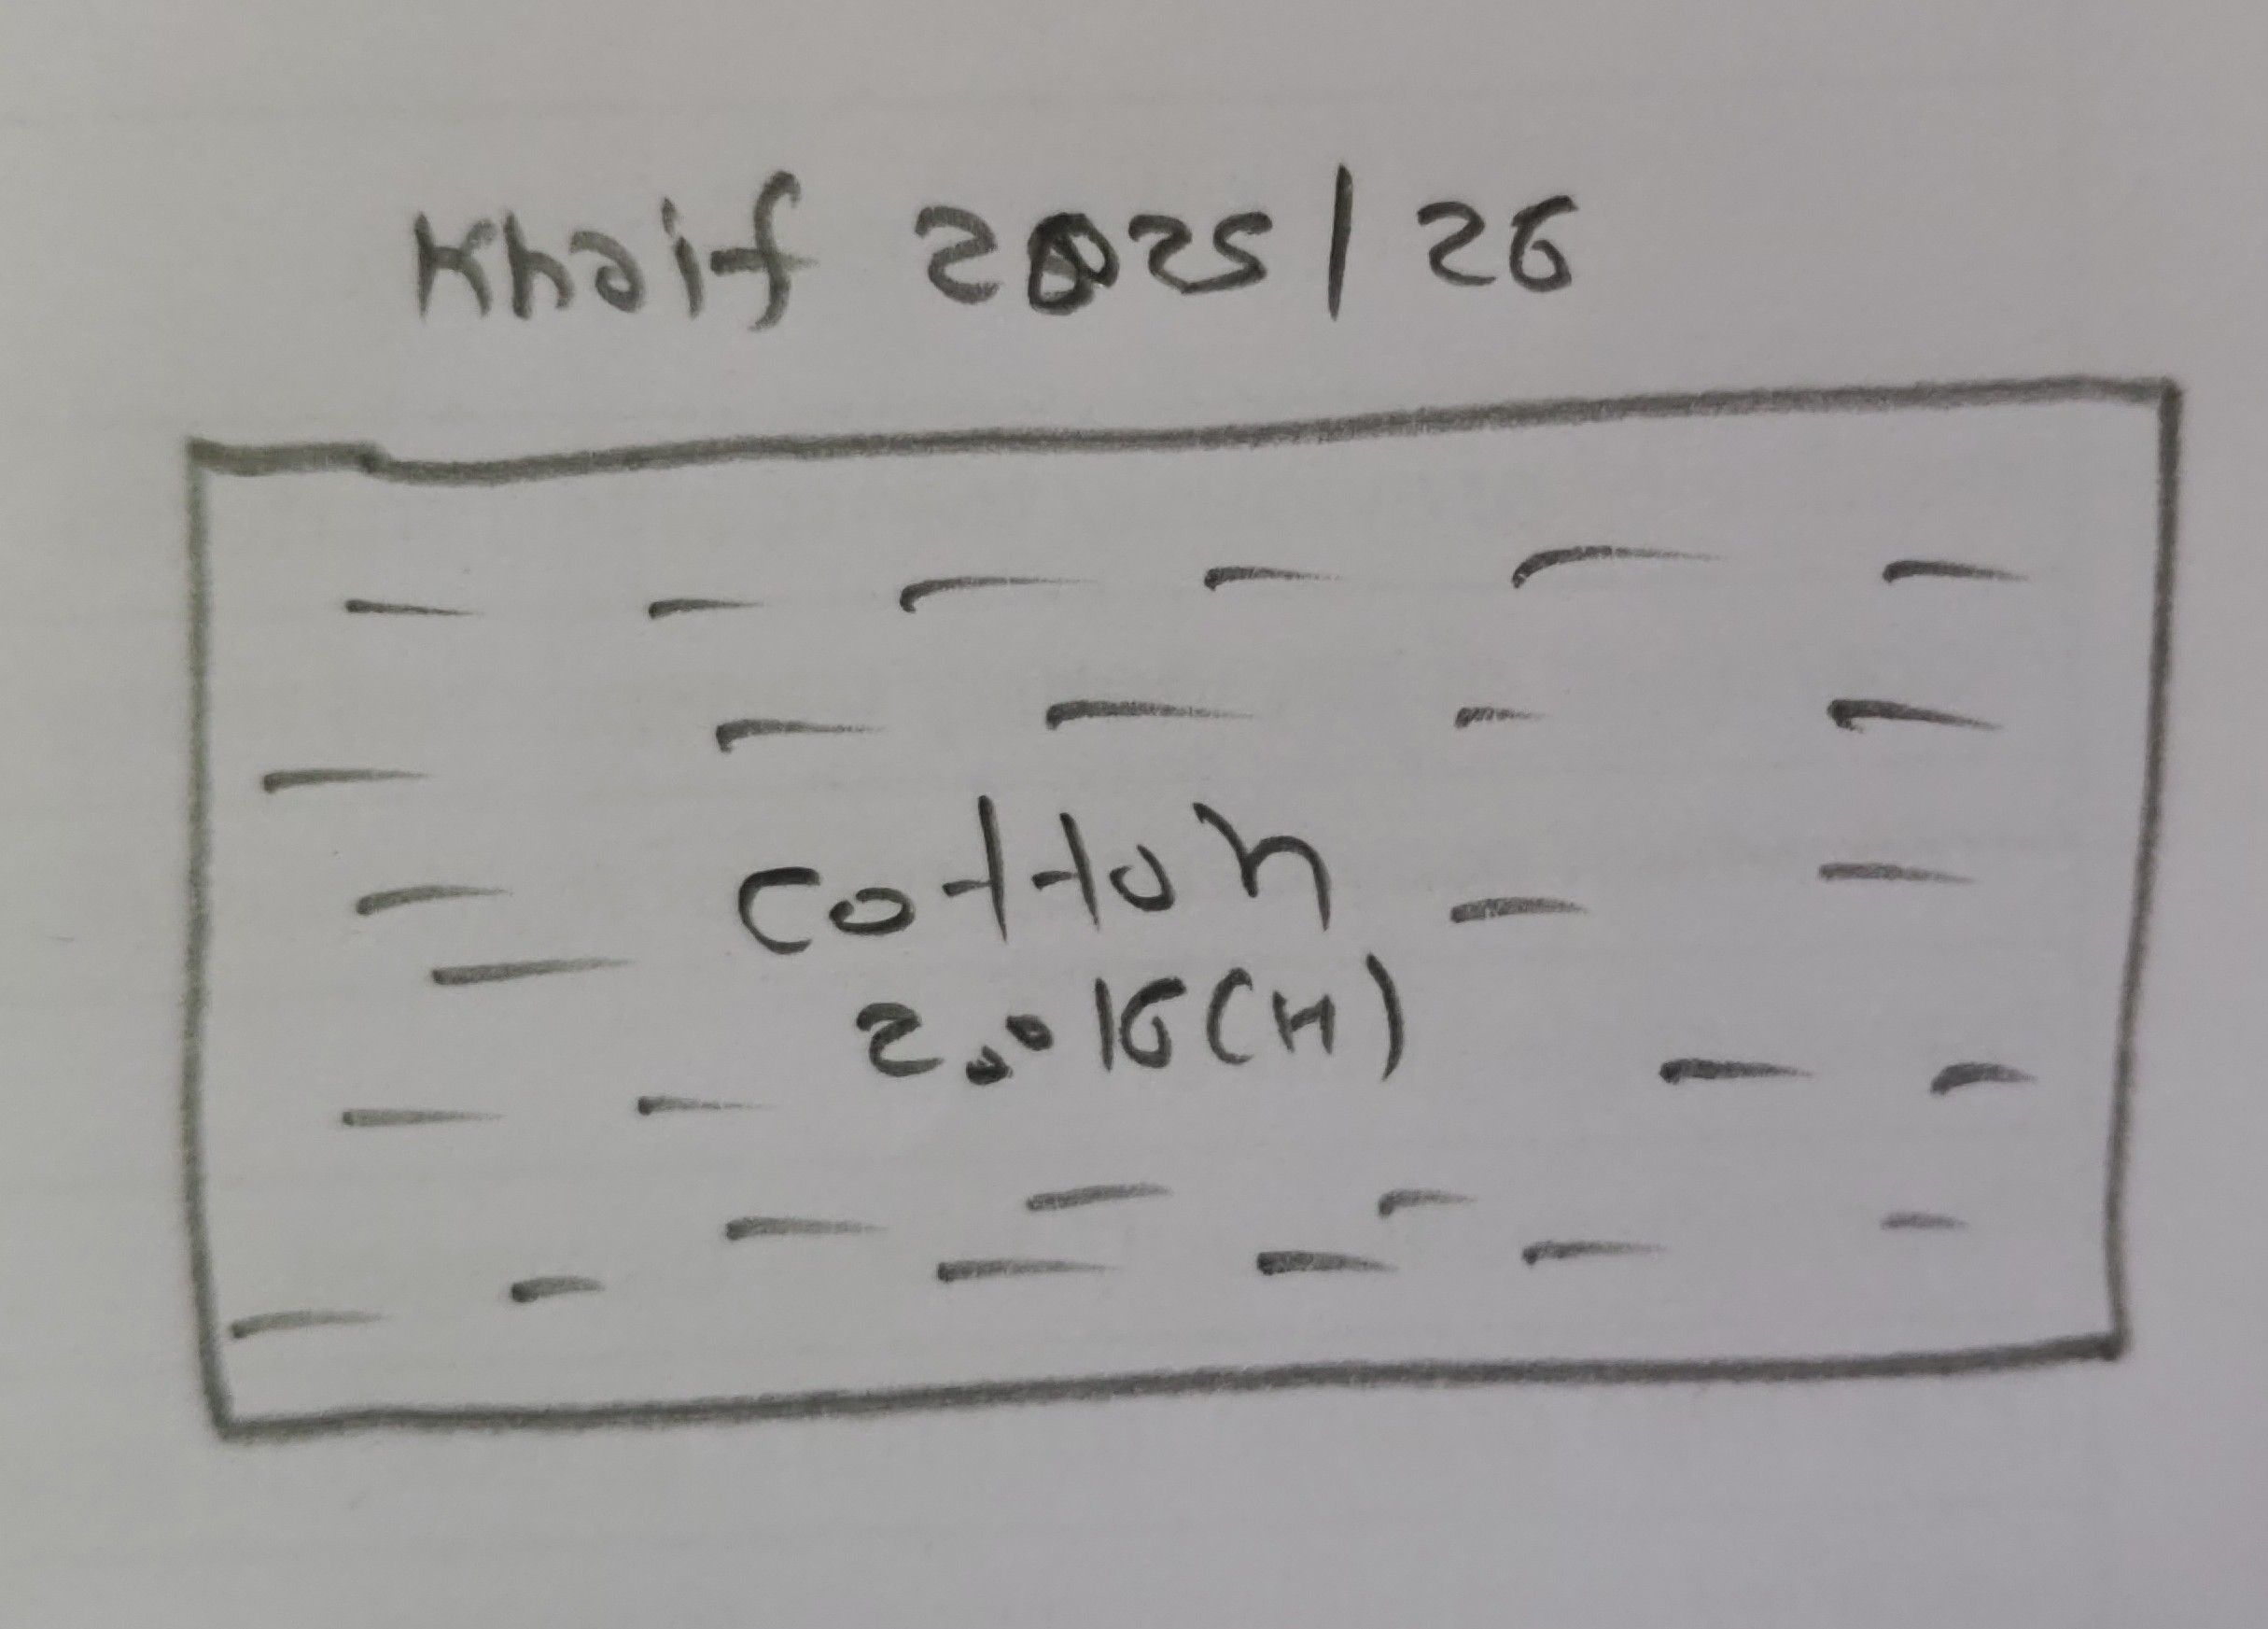 Khaif 2025/26
Cotton
2.016(H)